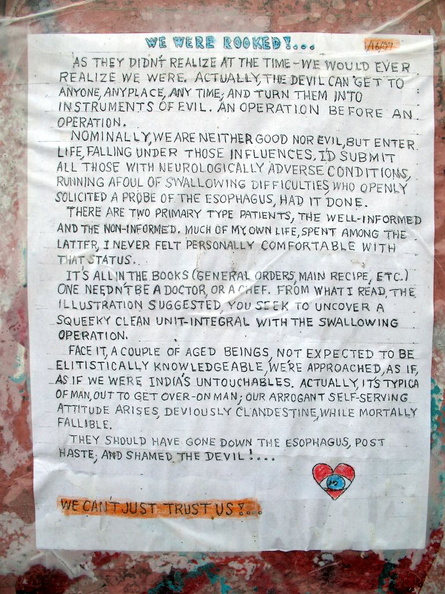 WE WERE ROOKED!...
AS THEY DIDN'T REALIZE AT THE TIME-WE WOULD EVER
REALIZE WE WERE. ACTUALLY, THE DEVIL CAN GET TO
ANYONE, ANYPLACE, ANY TIME; AND TURN THEM INTO
INSTRUMENTS OF EVIL. AN OPERATION BEFORE AN
OPERATION.
NOMINALLY, WE ARE NEITHER GOOD NOR EVIL, BUT ENTER
LIFE, FALLING UNDER THOSE INFLUENCES. I'D SUBMIT
ALL THOSE WITH NEUROLOGICALLY ADVERSE CONDITIONS,
RUNNING AFOUL OF SWALLOWING DIFFICULTIES, WHO OPENLY
SOLICITED A PROBE OF THE ESOPHAGUS, HAD IT DONE.
THERE ARE TWO PRIMARY TYPE PATIENTS, THE WELL-INFORMED
AND THE NON-INFORMED. MUCH OF MY OWN LIFE, SPENT AMONG THE
LATTER, I NEVER FELT PERSONALLY COMFORTABLE WITH
THAT STATUS.
IT'S ALL IN THE BOOKS (GENERAL ORDERS, MAIN RECIPE, ETC.)
ONE NEEDN'T BE A DOCTOR, OR A CHEF. FROM WHAT I READ, THE
ILLUSTRATION SUGGESTED YOU SEEK TO UNCOVER A
SQUEEKY CLEAN UNIT-INTEGRAL WITH THE SWALLOWING
OPERATION.
FACE IT, A COUPLE OF AGED BEINGS, NOT EXPECTED TO BE
ELITISTICALLY KNOWLEDGEABLE, WE'RE APPROACHED, AS IF,
AS IF WE WERE INDIA'S UNTOUCHABLES. ACTUALLY, IT'S TYPICA
OF MAN, OUT TO GET OVER-ON MAN; OUR ARROGANT SELF-SERVING
ATTITUDE ARISES, DEVIOUSLY CLANDESTINE, WHILE MORTALLY
FALLIBLE.
THEY SHOULD HAVE GONE DOWN THE ESOPHAGUS, POST
HASTE, AND SHAMED THE DEVIL!...
WE CAN'T JUST TRUST US!...